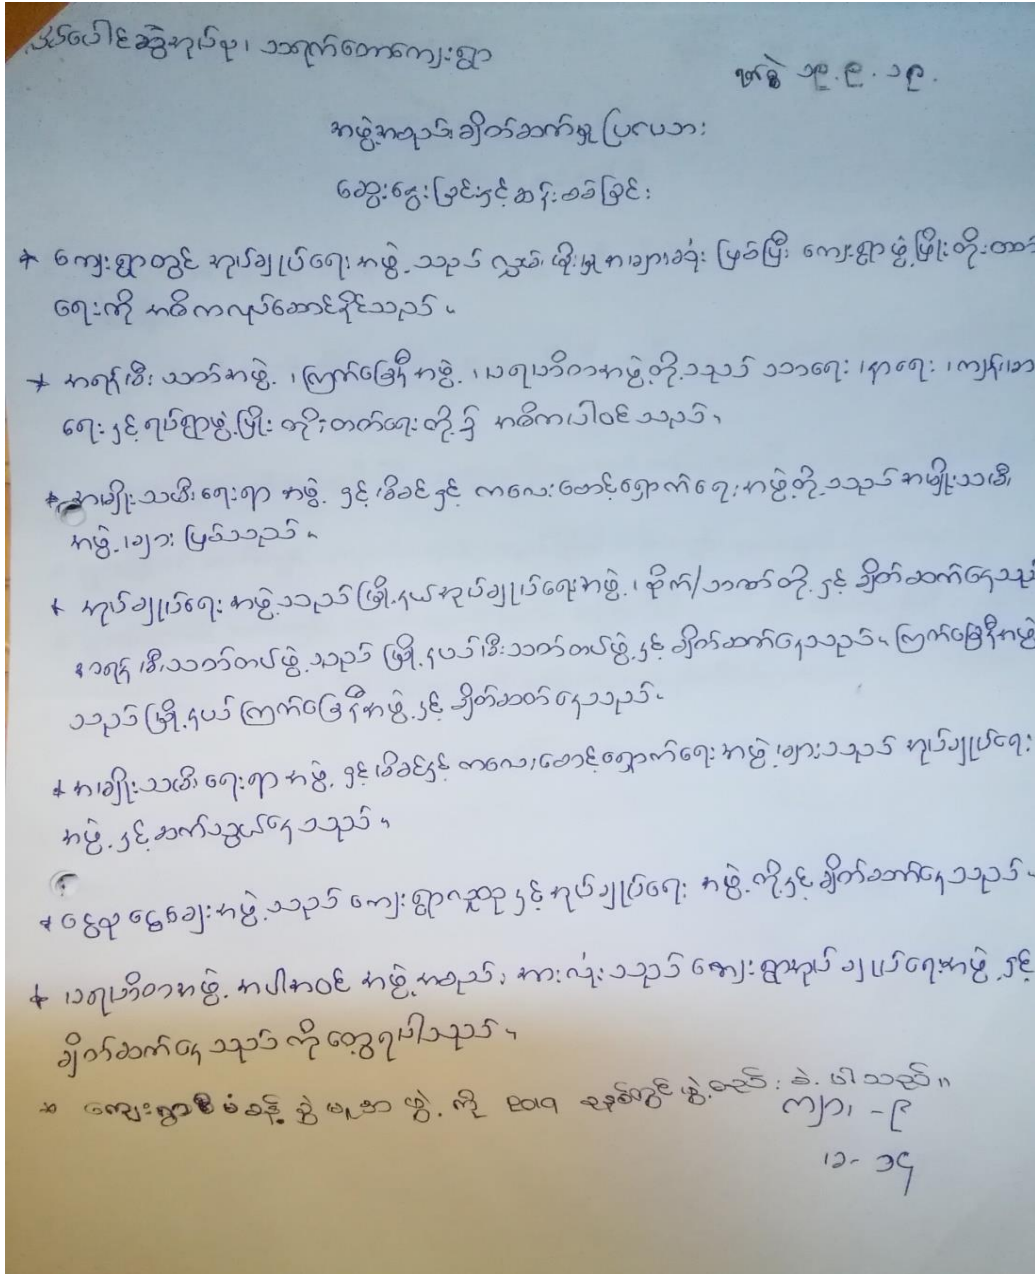 အုပ်စု၊ သရက်တောကျေးရွာ
ရက်စွဲ ၁၉.၉.၁၉.
အဖွဲ့အစည်းချိတ်ဆက်မှုပြပုံအား
ဆွေးနွေးခြင်းနှင့်ဆန်းစစ်ခြင်း
* ကျေးရွာတွင် အုပ်ချုပ်ရေးအဖွဲ့သည် လွှမ်းမိုးမှုအများဆုံး ဖြစ်ပြီး ကျေးရွာဖွံ့ဖြိုးတိုးတက်
ရေးကို အဓိကလုပ်ဆောင်နိုင်သည်။
* အရန်မီးသတ်အဖွဲ့၊ ကြက်ခြေနီအဖွဲ့၊ ပရဟိတအဖွဲ့တို့သည် သာရေး၊ နာရေး၊ ကျန်းမာ
ရေးနှင့် ရပ်ရွာဖွံ့ဖြိုးတိုးတက်ရေးတို့၌ အဓိကပါဝင်သည်။
* အမျိုးသမီးရေးရာအဖွဲ့နှင့် မိခင်နှင့် ကလေးစောင့်ရှောက်ရေးအဖွဲ့တို့သည် အမျိုးသမီး
အဖွဲ့များ ဖြစ်သည်။
* အုပ်ချုပ်ရေးအဖွဲ့သည် မြို့နယ်အုပ်ချုပ်ရေးအဖွဲ့၊ စိုက်/ဘဏ်တို့နှင့် ချိတ်ဆက်နေသည်
အရန်မီးသတ်တပ်ဖွဲ့သည် မြို့နယ်မီးသတ်တပ်ဖွဲ့နှင့် ချိတ်ဆက်နေသည်။ ကြက်ခြေနီအဖွဲ့
သည် မြို့နယ်ကြက်ခြေနီအဖွဲ့နှင့် ချိတ်ဆက်နေသည်။
* အမျိုးသမီးရေးရာအဖွဲ့နှင့် မိခင်နှင့် ကလေးစောင့်ရှောက်ရေးအဖွဲ့များသည် အုပ်ချုပ်ရေး
အဖွဲ့နှင့်ဆက်သွယ်နေသည်။
* ငွေစုငွေချေးအဖွဲ့သည် ကျေးရွာလူထုနှင့်အုပ်ချုပ်ရေးအဖွဲ့တို့နှင့်ချိတ်ဆက်နေသည်။
* ပရဟိတအဖွဲ့အပါအဝင် အဖွဲ့အစည်းအားလုံးသည် ကျေးရွာအုပ်ချုပ်ရေးအဖွဲ့နှင့်
ချိတ်ဆက်နေသည်ကို တွေ့ရပါသည်။
* ကျေးရွာစီမံခန့်ခွဲမှုအဖွဲ့ကို ၂၀၁၉ ခုနှစ်တွင်ဖွဲ့စည်းခဲ့ပါသည်။
ကျား - ၉
မ - ၁၄